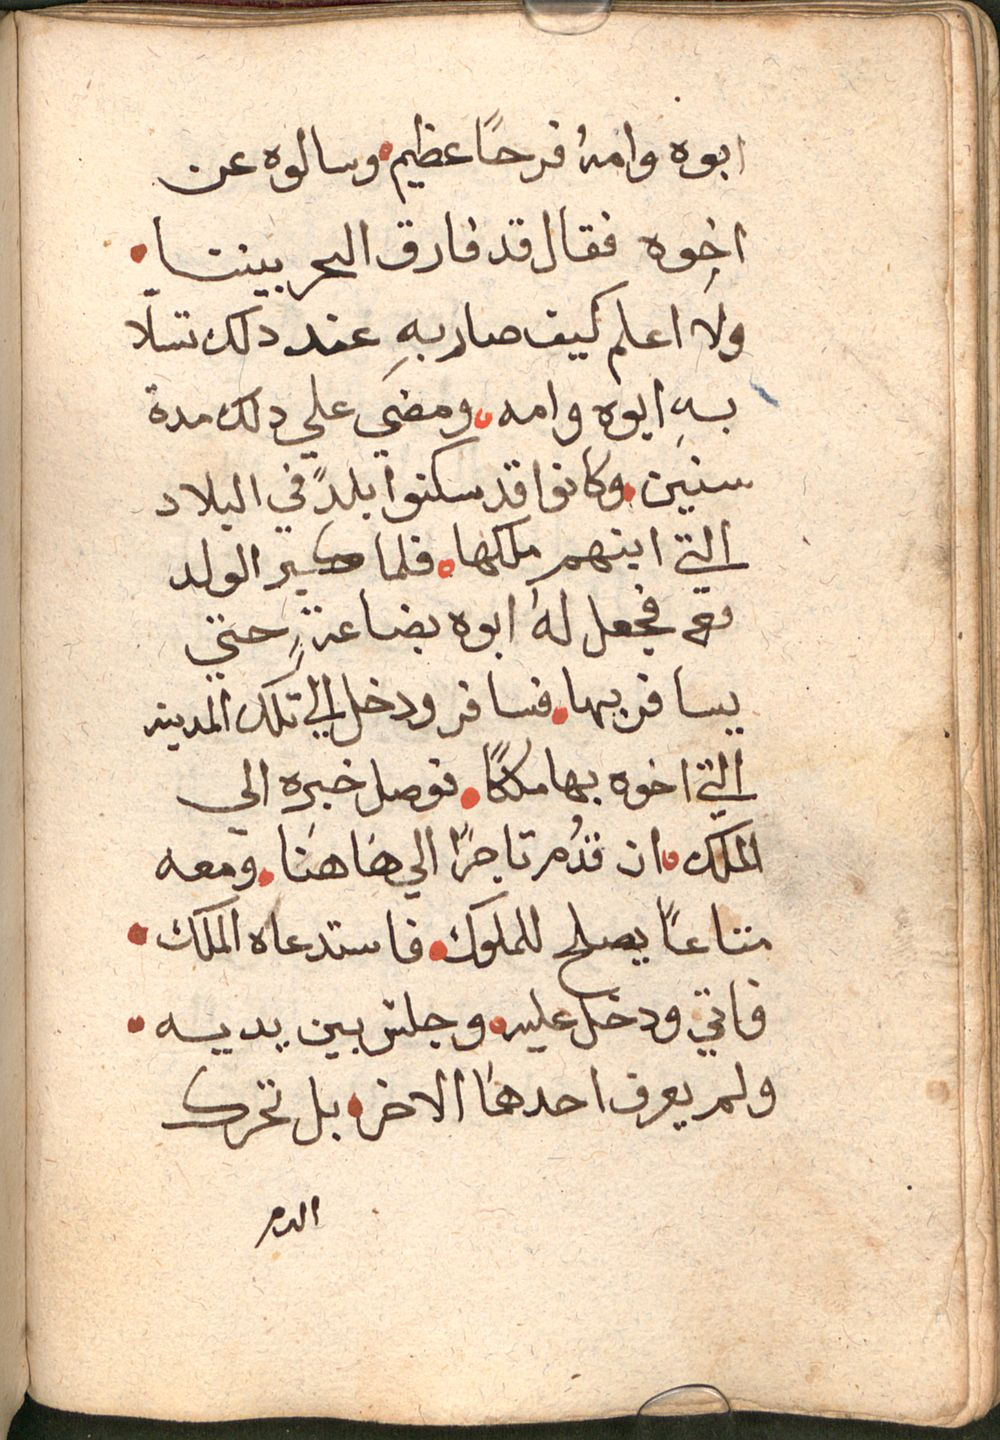 ابوه وامهُ فرحًا عظيم • وسالوه عن
اخوه فقال قد فارق البحر بيننا •
ولا اعلم كيف صار بهِ عند دلك تسلّا
بهِ ابوه وامه • ومضي علي دلك مدة
سنين • وكانوا قد سكنوا بلدً في البلاد
التي ابنهم ملكها • فلما كبر الولد
فجعل لهُ ابوه بضاعةٍ حتي
يسافر بها • فسافر ودخل الي تلك المدينه
التي اخوه بها ملكًا • فوصل خبره الي
الملك • ان قدُم تاجرًا الي هاهنا • ومعه
متاعًا يصلح للملوك • فاستدعاه الملك •
فاتي ودخل عليه • وجلس بين يديه •
ولم يعرف احدهما الاخر • بل تحرك
الدم